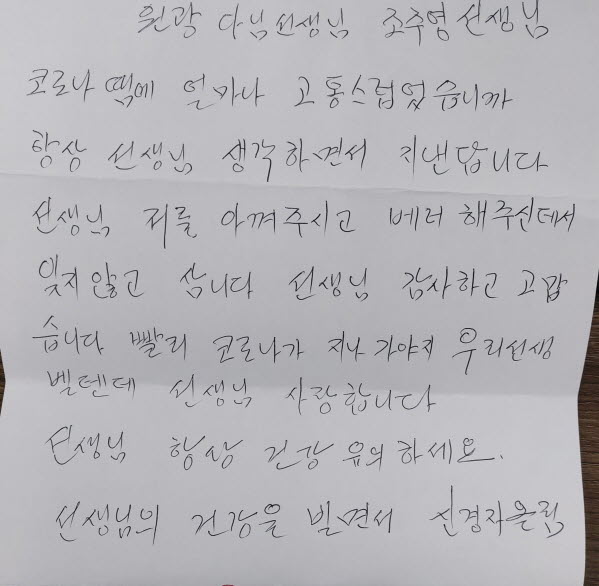 원광 다님선생님 조주영선생님
코로나 땍에 얼마나 고통스럽었습니까
항상 선생님 생각하면서 지낸답니다
선생님 저를 아껴주시고 베려해주신데서
잊지않고 삽니다 선생님 감사하고 고맙
습니다 빨리 코로나가 지나가야지 우리선생
벨텐데 선생님 사랑합니다
선생님 항상 건강 유의하세요.
선생님의 건강을 빌면서 신경자올림